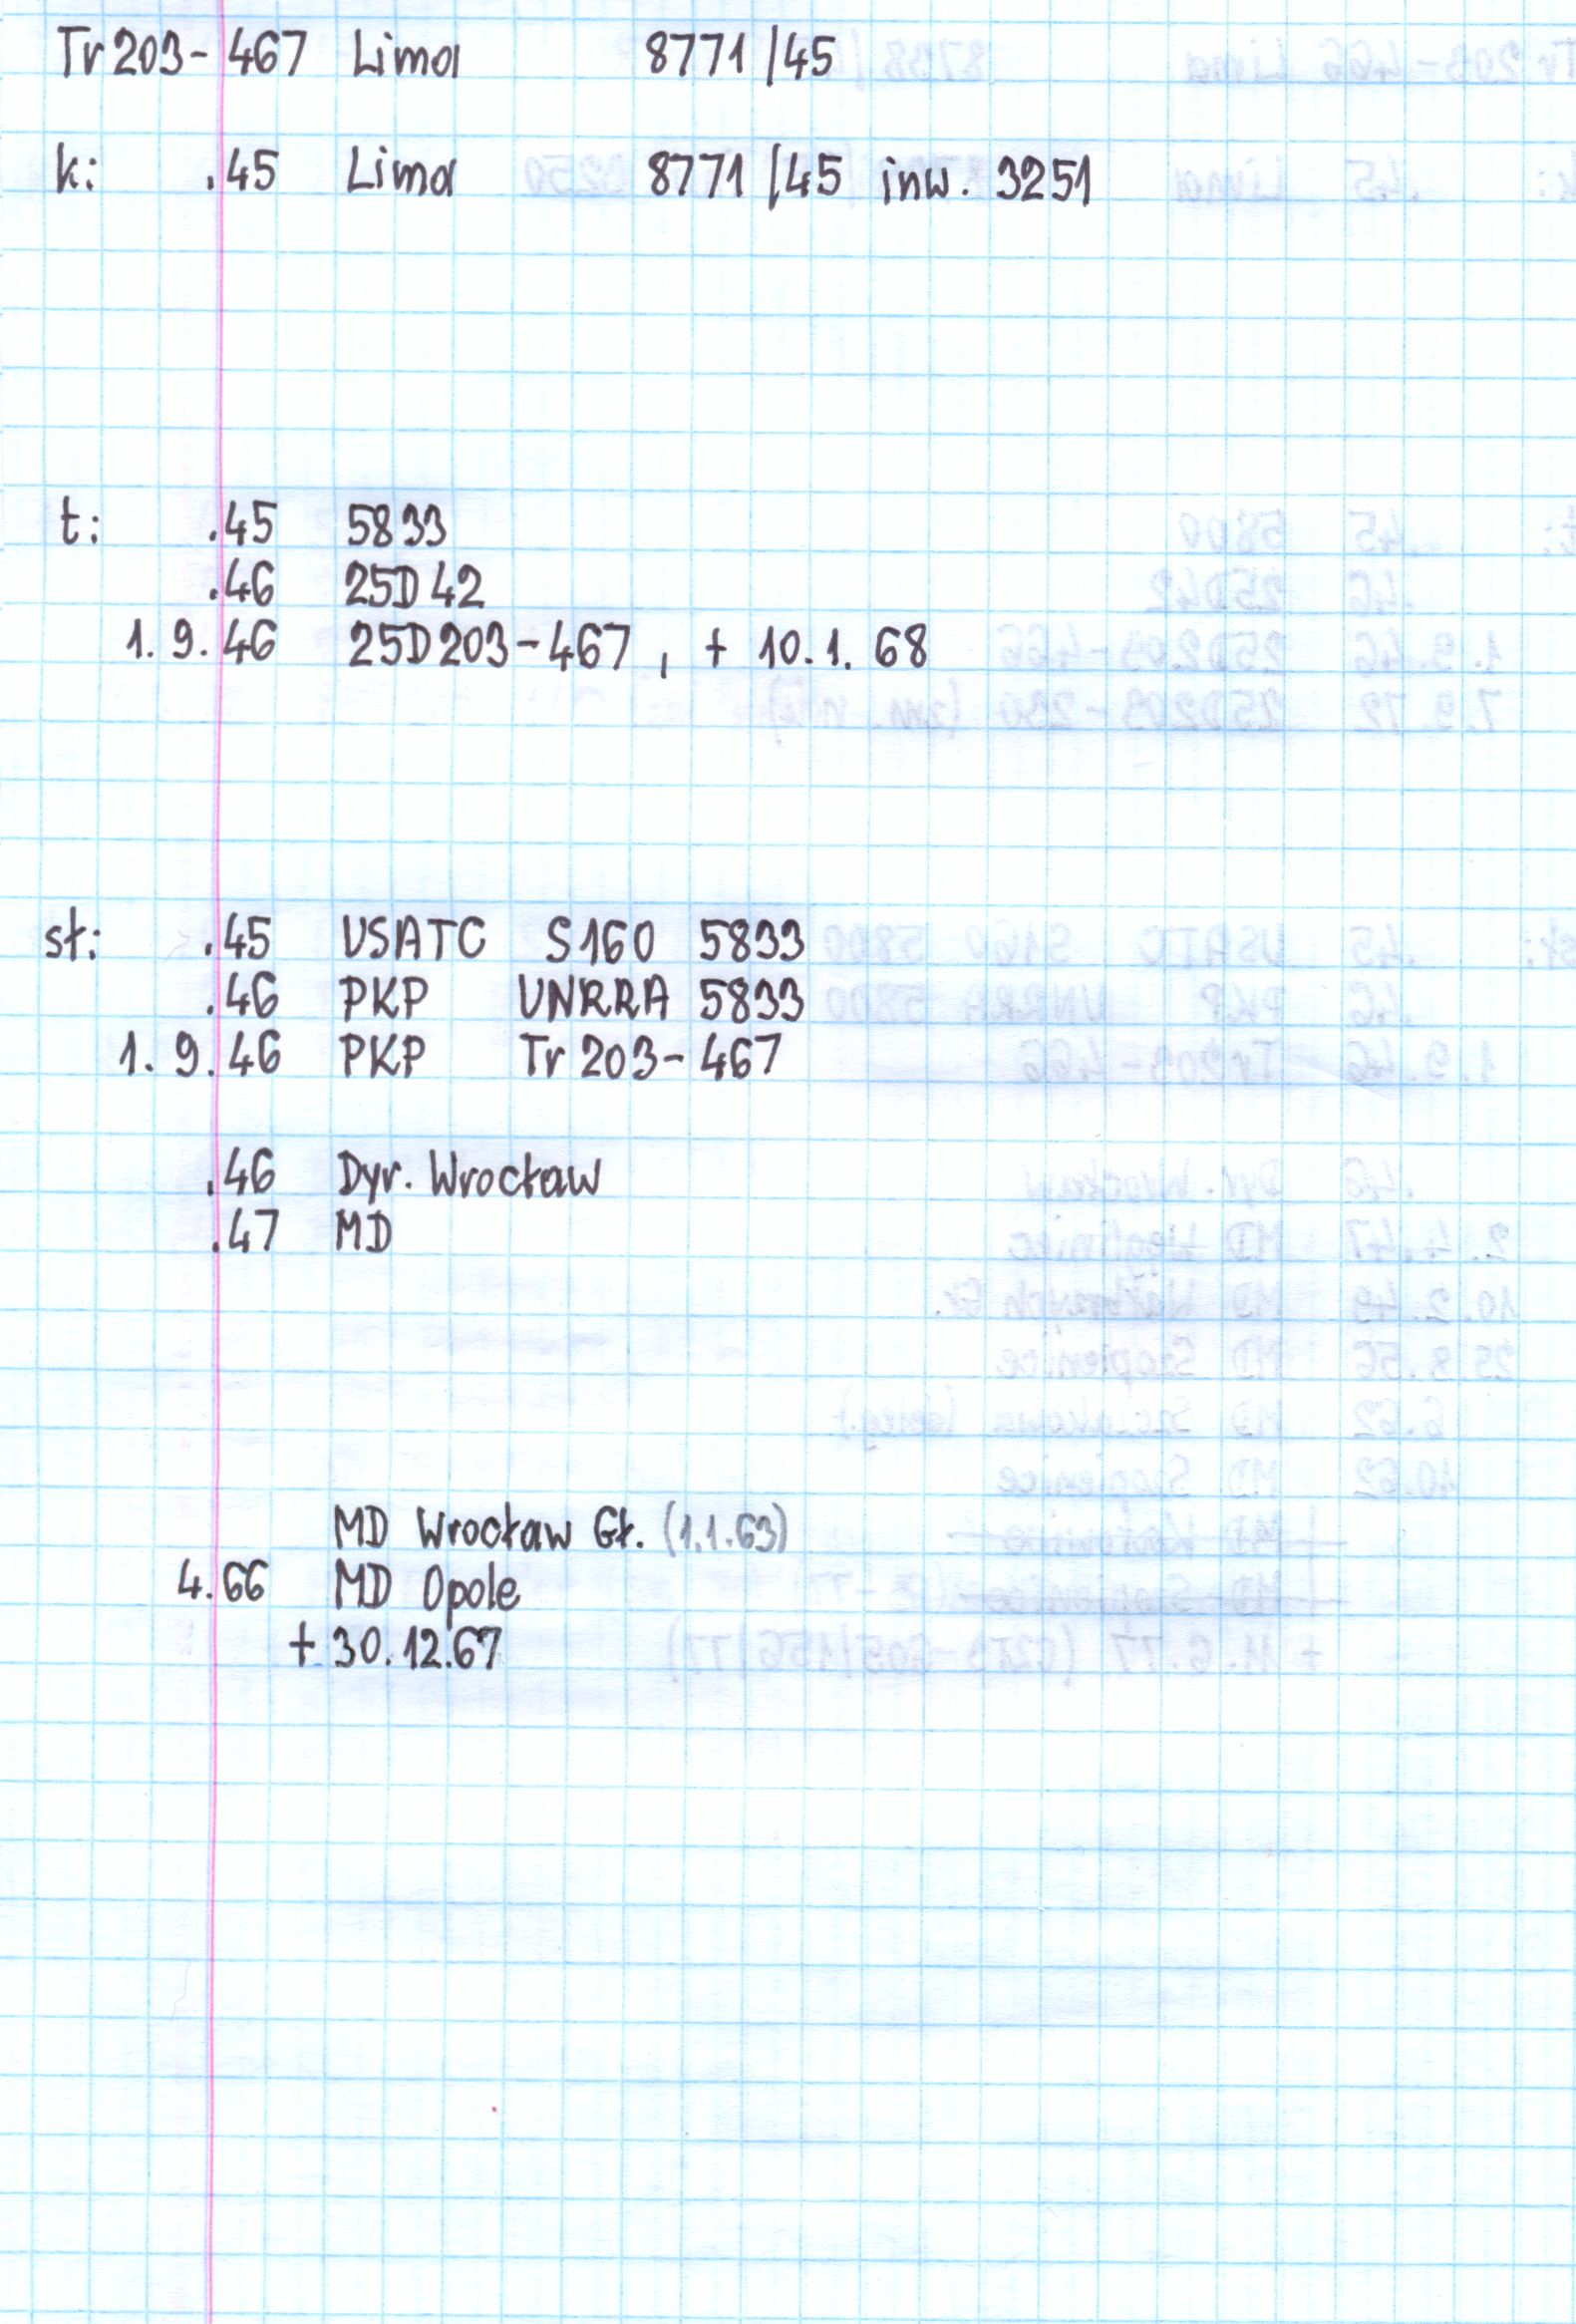 Tr 203-467 Lima 8771/45
k: .45 Lima 8771/45 inw. 3251
t: .45 5833
.46 25D42
1.9.46 25D203-467, + 10.1.68
sł: .45 USATC S160 5833
.46 PKP UNRRA 5833
1.9.46 PKP Tr 203-467
.46 Dyr. Wrocław
.47 MD
MD Wrocław Gł. (1.1.63)
4.66 MD Opole
+ 30.12.67